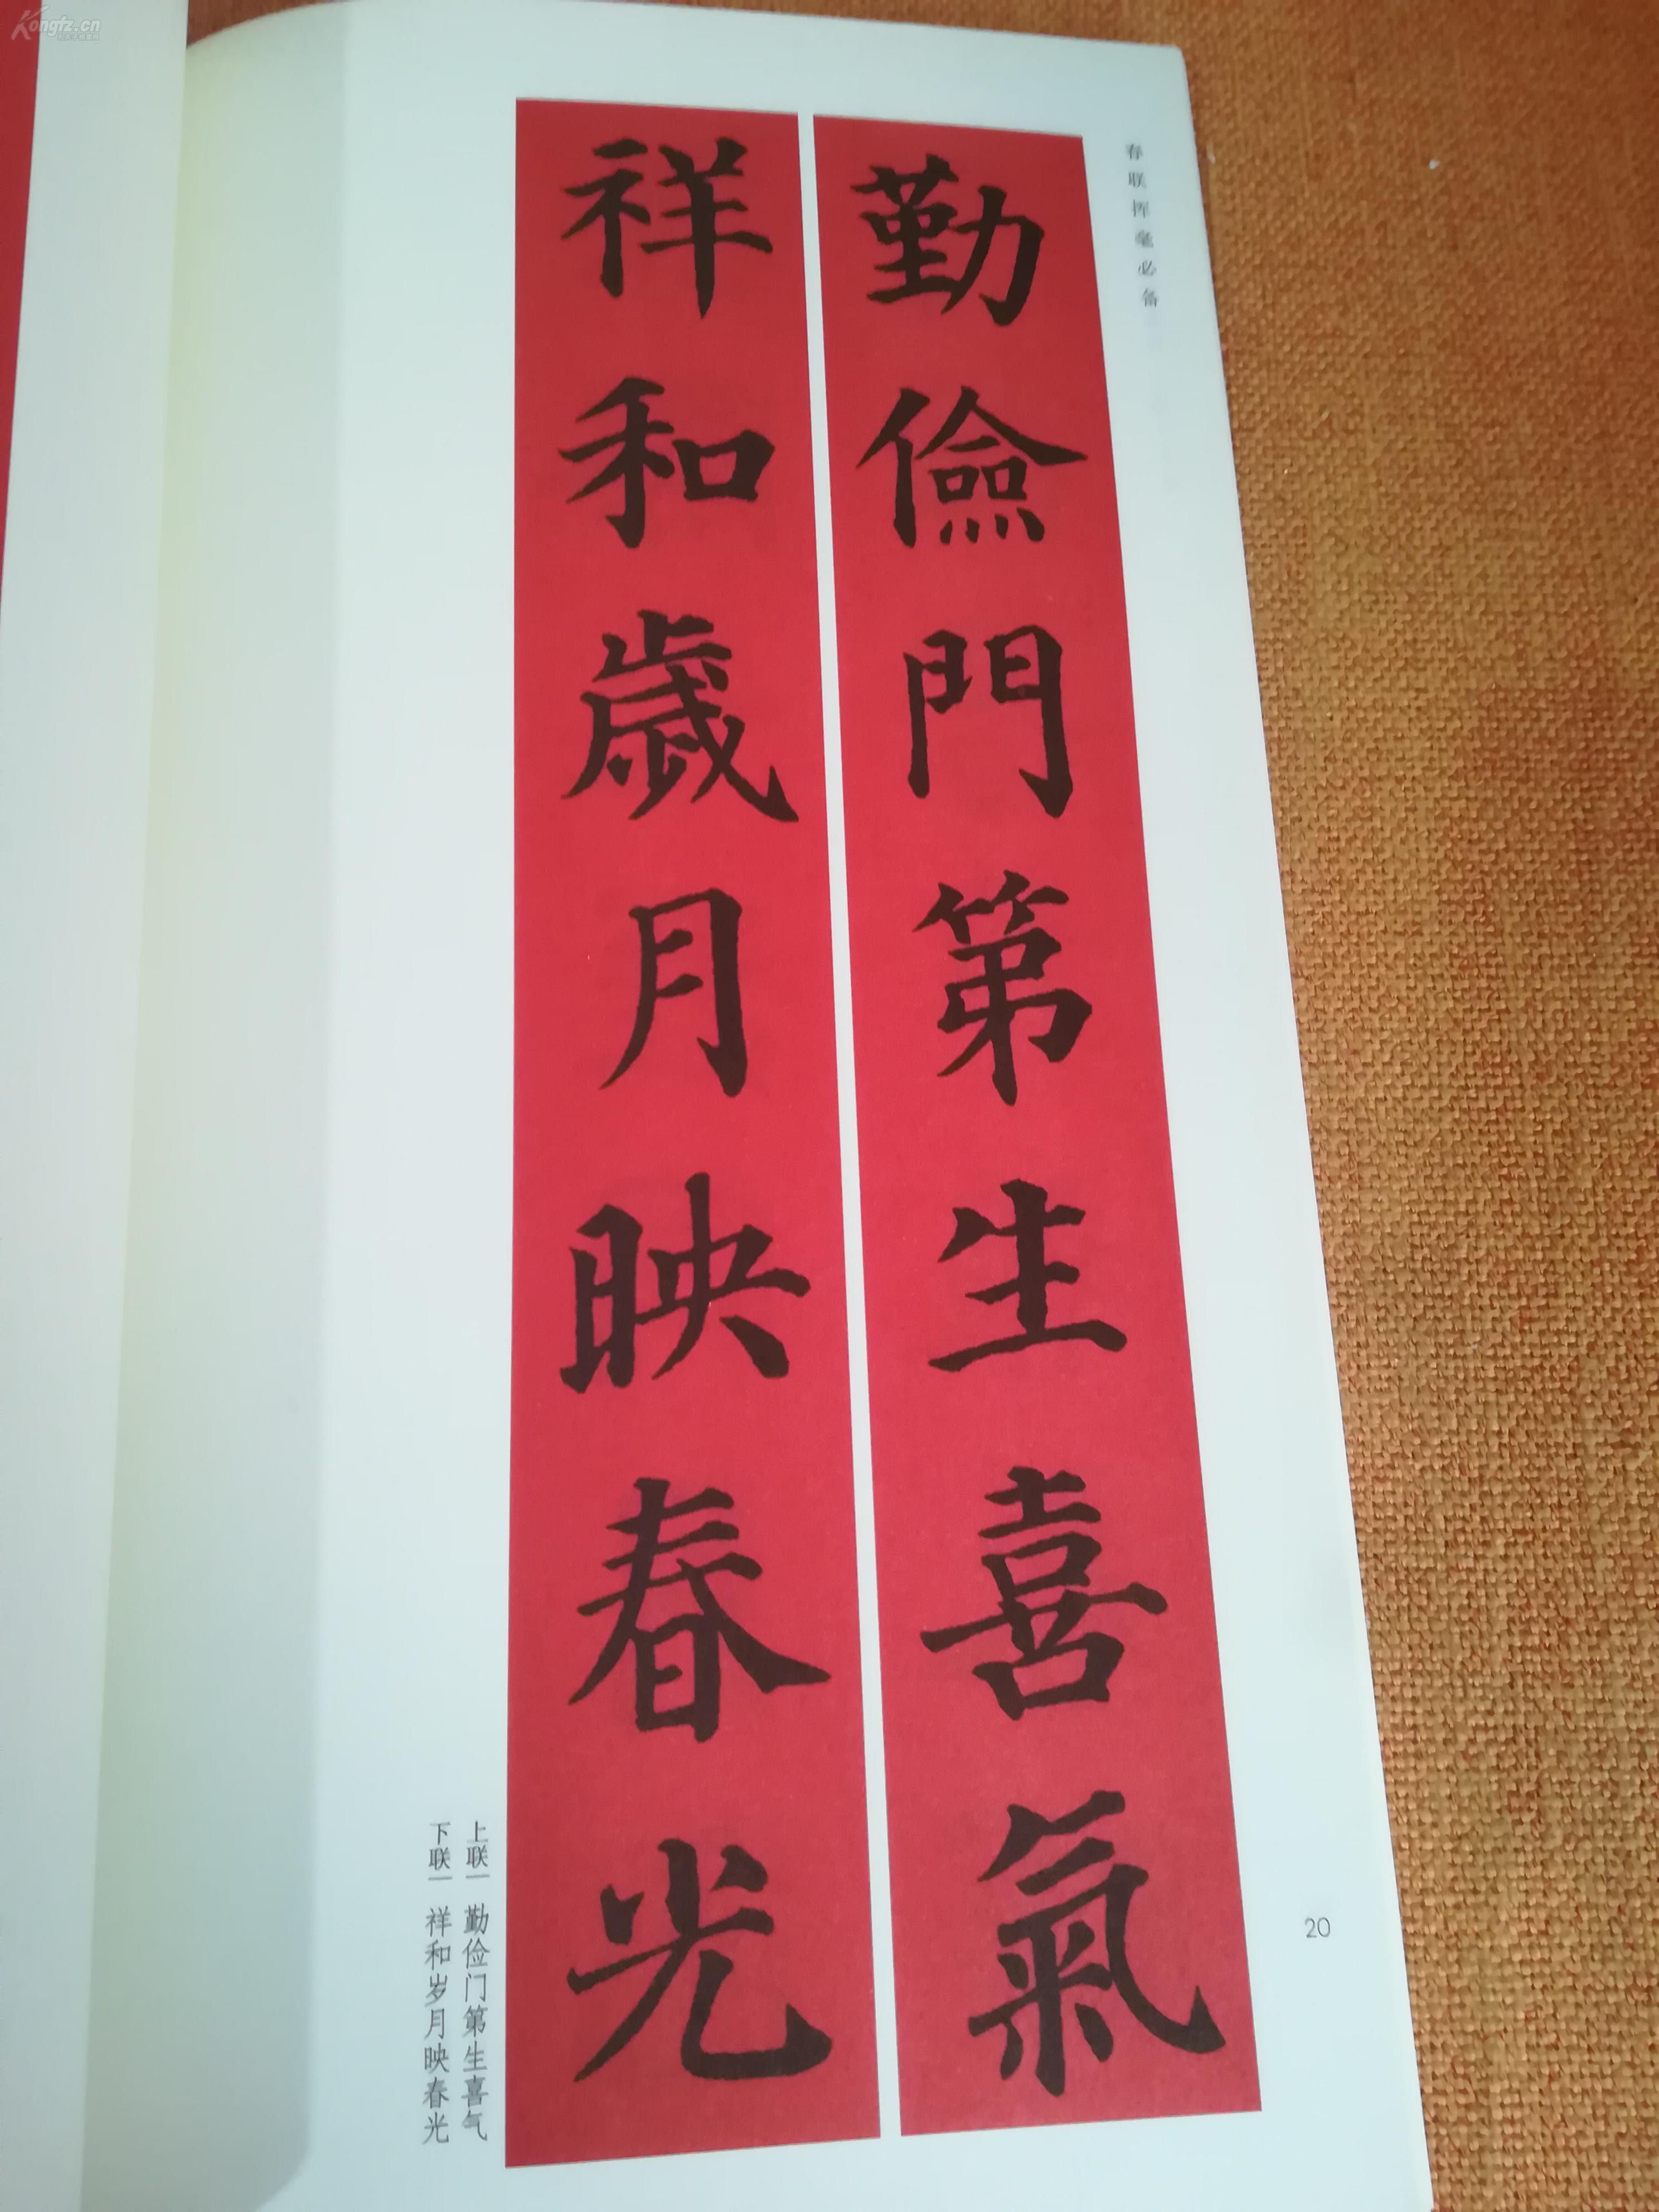 Kongfz.cn
春联挥毫必备
勤儉門第生喜氣
祥和歲月映春光
上联— 勤俭门第生喜气
下联— 祥和岁月映春光
20